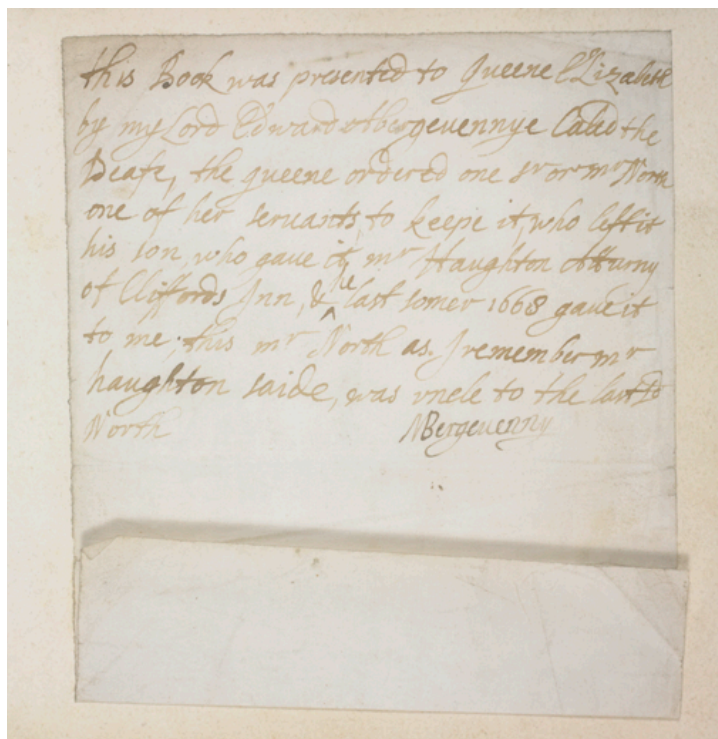 this Book was presented to Queene Elizabeth
by my Lord Edward Abergevennye Called the
Deafe, the queene ordered one sr or mr North
one of her servants, to keepe it, who left it
his son, who gave it, mr Haughton Atturny
of Cliffords Inn, & he last somer 1668 gave it
to me; this mr North as I remember mr
haughton saide, was vncle to the last Ld
North
NBergevenny